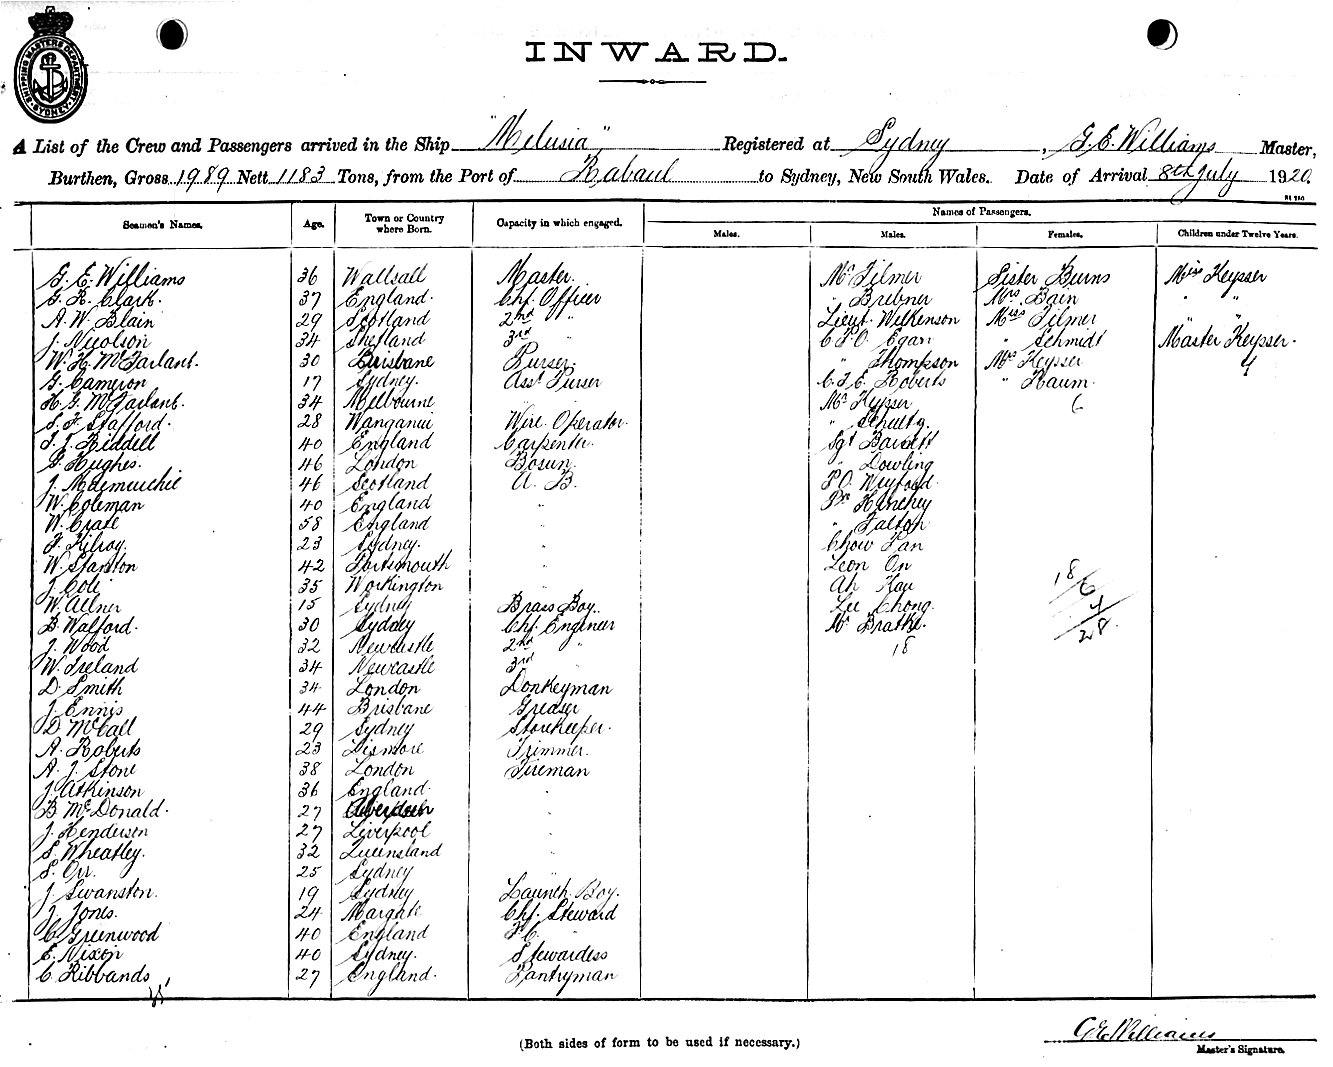 SHIPPING MASTERS DEPARTMENT SYDNEY
INWARD.
A List of the Crew and Passengers arrived in the Ship "Melusia", Registered at Sydney, G.E. Williams Master,
Burthen, Gross 1989 Nett 1183 Tons, from the Port of Rabaul to Sydney, New South Wales. Date of Arrival 8th July 1920.
Seamen's Names. Age. Town or Country where Born. Capacity in which engaged. Names of Passengers.
Males. Males. Females. Children under Twelve Years.
G. E. Williams 36 Wallsall Master. Mr Filmer Sister Burns Miss Keysser
G. R. Clark. 37 England. Chf. Officer " Brebner Mrs. Bain " "
A. W. Blain 29 Scotland 2nd " Lieut. Wilkenson Miss Filmer
J. Nicolson 34 Shetland 3rd " C.P.O. Egan " Schmidt Master Keysser.
W. H. McFarlant. 30 Brisbane Purser. " Thompson Mrs Keysser 4
G. Cameron 17 Sydney. Asst Purser C.F.E. Roberts " Kaum.
H. G. McFarlant. 34 Melbourne Mr Keysser 6
S. F. Stafford. 28 Wanganui Wire. Operator. "
T. J. Riddell 40 England Carpenter. Sgt Barrett
G. Hughes. 46 London Bosun. " Dowling
J. 46 Scotland A. B. P.O.
W. Coleman 40 England "
W. 58 England " " Falton
F. Kilroy. 23 Sydney. " Chow Pan
W. Stanton 42 Portsmouth " Leon On
J. Cole 35 Workington " Ah Kau
W. 15 Sydney Brass Boy. Lee Chong.
B. Walford. 30 Sydney Chf. Engineer Mr Bratke.
J. Wood 32 Newcastle 2nd " 18
W. Ireland 34 Newcastle 3rd "
D. Smith 34 London Donkeyman
J. Ennis 44 Brisbane Greaser
D. McCall 29 Sydney Storekeeper.
A. Roberts 23 Lismore Trimmer.
A. J. Stone 38 London Fireman
J. Atkinson 36 England.
B. McDonald. 27 Aberdeen
J. Henderson 27 Liverpool
S. Wheatley. 32 Queensland
S. Orr. 25 Sydney
J. Swanston. 19 Sydney Launch Boy.
J. Jones. 24 Margate Chf. Steward
C. Greenwood 40 England
E. Nixon 40 Sydney. Stewardess
C. Ribbands 27 England. Pantryman
18
6
4
28.
(Both sides of form to be used if necessary.)
G E Williams
Master's Signature.